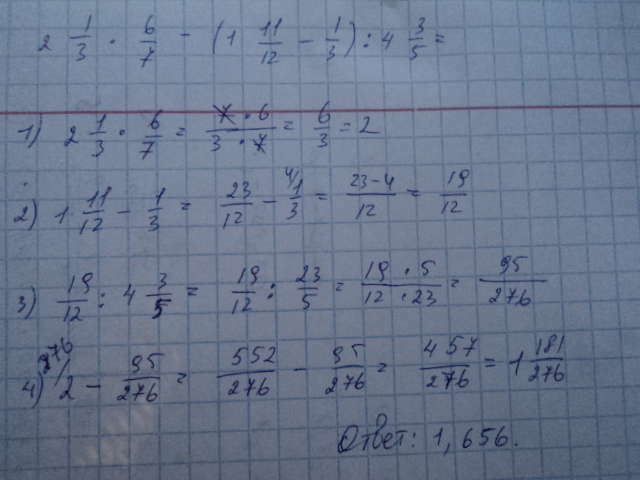 2 1/3 · 6/7 - (1 11/12 - 1/3) : 4 3/5 =
1) 2 1/3 · 6/7 = 7 · 6 / 3 · 7 = 6/3 = 2
2) 1 11/12 - 1/3 = 23/12 - 4/ 1/3 = 23-4/12 = 19/12
3) 19/12 : 4 3/5 = 19/12 : 23/5 = 19 · 5 / 12 · 23 = 95/276
4) 276/ 2 - 95/276 = 552/276 - 95/276 = 457/276 = 1 181/276
Ответ: 1,656.